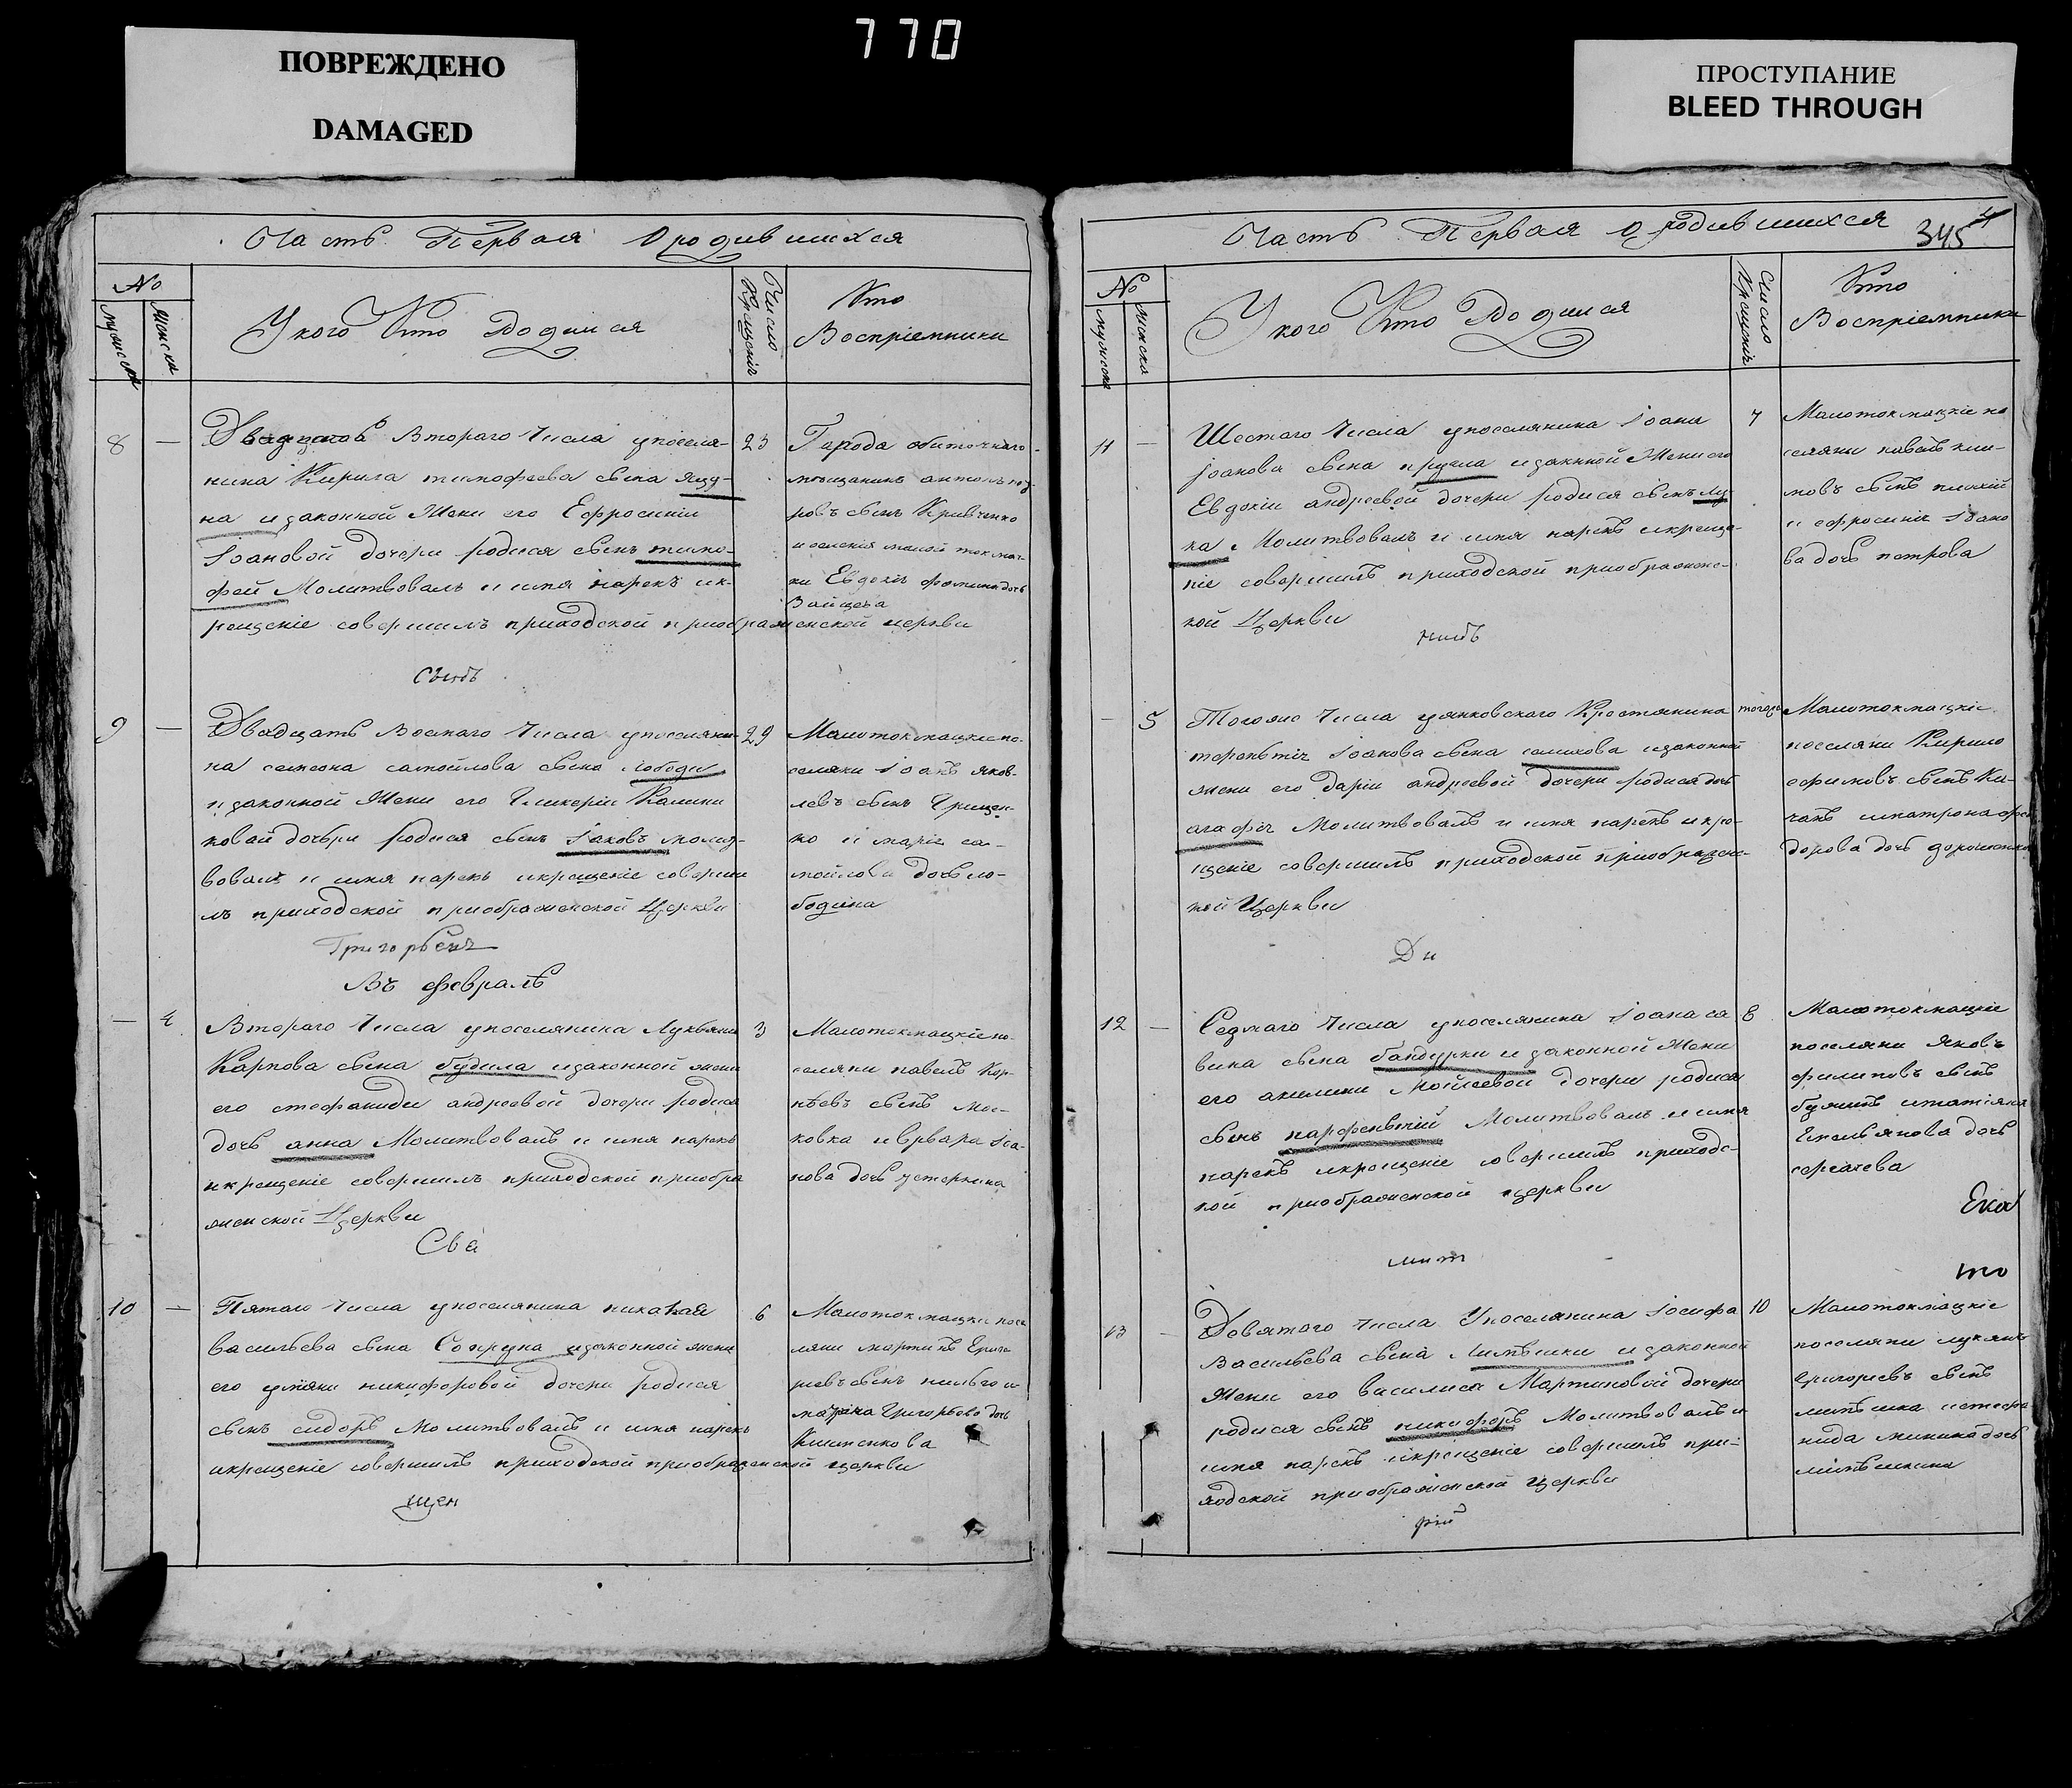 770
ПОВРЕЖДЕНО
DAMAGED
ПРОСТУПАНИЕ
BLEED THROUGH
Часть Первая О родившихся
№
Мужеска
Женска
У кого Кто Родился
Число Крещенія
Кто
Воспріемники
8 — Двадцать Втораго Числа упоселя- 23
нина Кирила тимофеева сына яцу-
на изаконной Жены его Ефросиніи
Іоановой дочери родися сынъ тимо-
фей Молитвовалъ и имя нарекъ ик-
рещеніе совершилъ приходской приображенской церкви
Города обиточнаго
мещанинъ антонъ
ровъ сынъ Кривченко
и селенія малой токмач-
ки Евдокія фомина дочь
Зайцева
Сынъ
9 — Двадцать Восмаго Числа упоселяни- 29
на самсона самойлова сына лободы
изаконной Жены его Гликеріи Калини
ковой дочери родися сынъ Іаковъ молит-
вовалъ и имя нарекъ икрещеніе соверши
лъ приходской приображенской Церкви
Малотокмацкіе по-
селяни Іоанъ яков-
левъ сынъ Грицен-
ко и марія са-
мойлова дочь ло-
бодина
Григорьевъ
Въ февралѣ
— 4 Втораго Числа упоселянина Лукьяна 3
Карпова сына будила изаконной жены
его стефаниды андреевой дочери родися
дочь анна Молитвовалъ и имя нарекъ
икрещеніе совершилъ приходской приобра
женской Церкви
Малотокмацкіе по-
селяни павелъ Кор-
нѣевъ сынъ Мос-
ковка иврвара Іоа-
нова дочь устеркина
Свя
10 — Пятаго Числа упоселянина николая 6
васильева сына Сопруна изаконной жены
его уляни никифоровой дочери родися
сынъ сидоръ Молитвовалъ и имя нарекъ
икрещеніе совершилъ приходской приображенской церкви
Малотокмацкіе посе
ляни мартинъ Григо
рьевъ сынъ
Григорьева дочь
Килипкова
щен
Часть Первая О родившихся
345
№
Мужеска
Женска
У кого Кто Родился
Число Крещенія
Кто
Воспріемники
11 — Шестаго Числа упоселянина Іоана 7
Іоанова сына изаконной Жены его
Евдокіи андреевой дочери родися сынъ лу-
ка Молитвовалъ и имя нарекъ икреще-
ніе совершилъ приходской приображенс-
кой Церкви
Малотокмацкіе по
селяни павелъ кли-
мовъ сынъ плохій
и ефросинія Іоано
ва дочь петрова
никъ
— 5 Тогожъ Числа уянковского Крестянина тогоже
терентія Іоанова сына салихова изаконной
жены его даріи андреевой дочери родися дочь
агафія Молитвовалъ и имя нарекъ икре-
щеніе совершилъ приходской приображенс-
кой Церкви
Малотокмацкіе
поселяни Кирило
ефимовъ сынъ Ка-
чанъ иматрона фео
дорова дочь дорошенкова
Ди
12 — Седмаго Числа упоселянина Іоана са 8
вина сына бандурки изаконной Жены
его акилини Мойсеевой дочери родися
сынъ парфентій Молитвовалъ и имя
нарекъ икрещеніе совершилъ приходс-
кой приображенской церкви
Малотокмацкіе
поселяни яковъ
филиповъ сынъ
иматіяна
Емельянова дочь
сергачева
Ека
мит
то
13 — Девятаго Числа Упоселянина Іосифа 10
Васильева сына Литвинки изаконной
Жены его василиси Мартиновой дочери
родися сынъ никифоръ Молитвовалъ и
имя нарекъ икрещеніе совершилъ при-
ходской приображенской Церкви
Малотокмацкіе
поселяни лукянъ
григорьевъ сынъ
истефа
нида минина дочь
рій